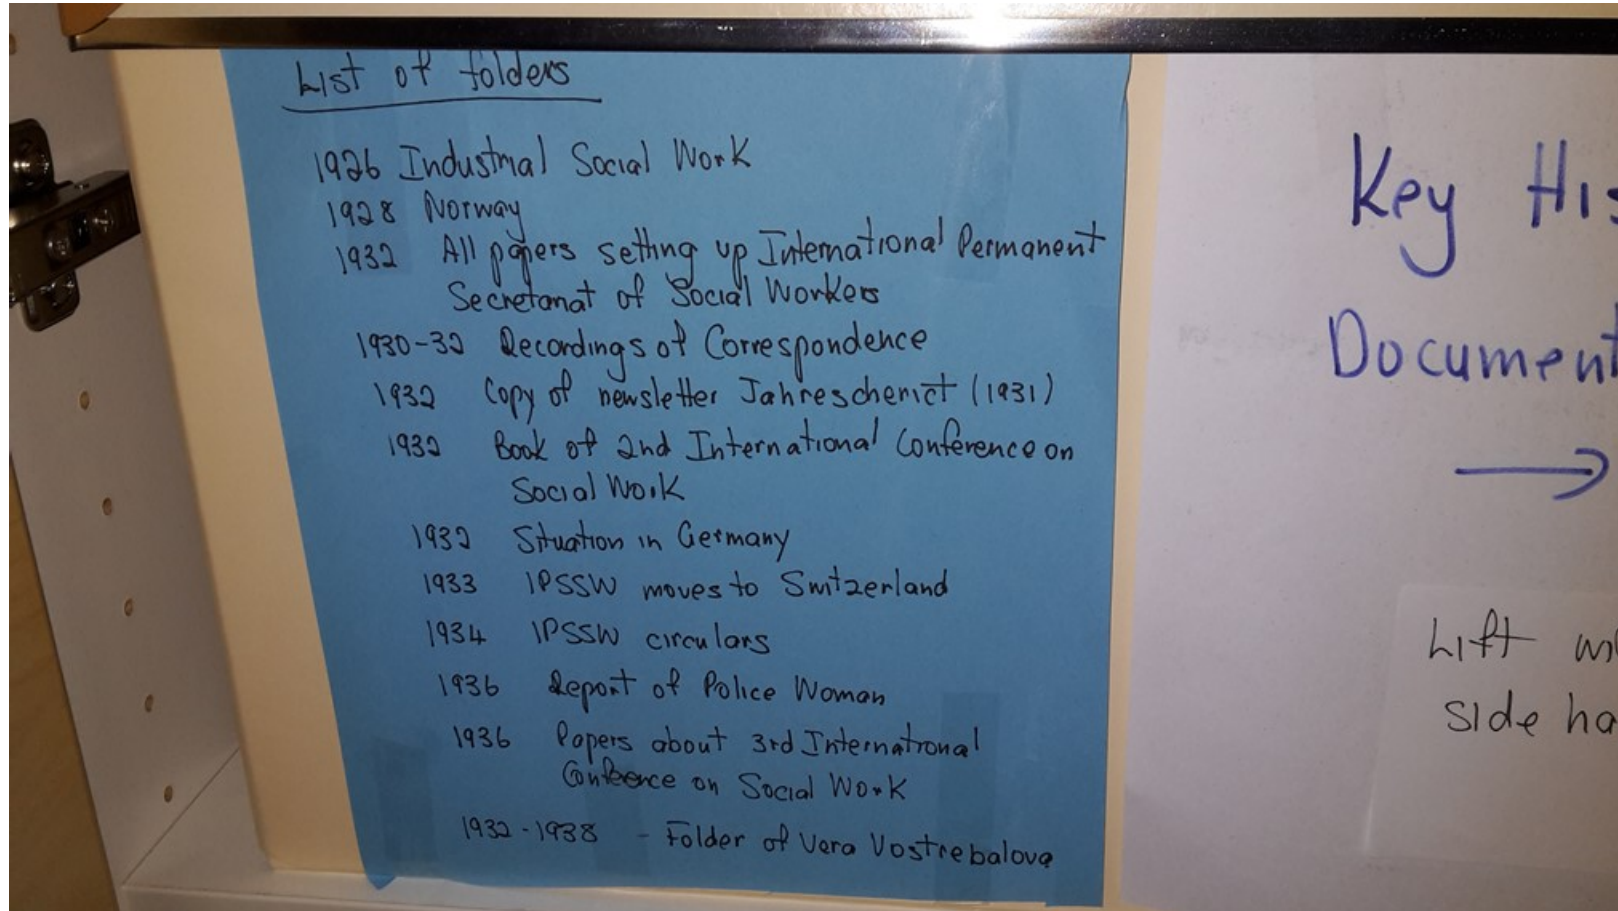 List of folders
1926 Industrial Social Work
1928 Norway
1932 All papers setting up International Permanent
Secretariat of Social Workers
1930-32 Recordings of Correspondence
1932 Copy of newsletter Jahrescherict (1931)
1932 Book of 2nd International Conference on
Social Work
1932 Situation in Germany
1933 IPSSW moves to Switzerland
1934 IPSSW circulars
1936 Report of Police Woman
1936 Papers about 3rd International
Conference on Social Work
1932-1938 - Folder of Vera Vostrebalova
Key His
Document
→
Lift wi
side ha